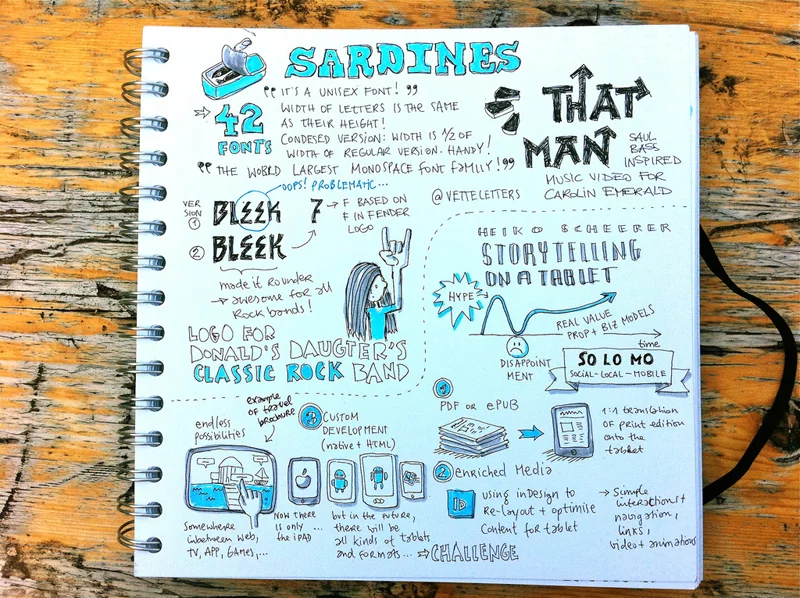 SARDINES
"IT'S A UNISEX FONT!"
42
FONTS
WIDTH OF LETTERS IS THE SAME
AS THEIR HEIGHT!
CONDESED VERSION: WIDTH IS 1/2 OF
WIDTH OF REGULAR VERSION. HANDY!
"THE WORLD LARGEST MONOSPACE FONT FAMILY!"
THAT
MAN
SAUL
BASS
INSPIRED
MUSIC VIDEO FOR
CAROLIN EMERALD
@VETTELETTERS
OOPS! PROBLEMATIC...
VER
SION
1
BLEEK
F
→ F BASED ON
F IN FENDER
LOGO
2
BLEEK
made it rounder
→ awesome for all
Rock bands!
LOGO FOR
DONALD'S DAUGTER'S
CLASSIC ROCK BAND
HEIKO SCHERER
STORYTELLING
ON A TABLET
HYPE
REAL VALUE
PROP + BIZ MODELS
time
DISAPPOINT
MENT
SO LO MO
SOCIAL-LOCAL-MOBILE
1
PDF OR ePUB
1:1 translation
of print edition
onto the
tablet
2 enriched Media
ID
using inDesign to
Re-layout + optimise
Content for tablet
→ Simple
interactions +
navigation,
links,
video + animations
3 CUSTOM
DEVELOPMENT
(native + HTML)
example
of travel
brochure
endless
possibilities
Somewhere
inbetween web,
TV, APP, GAMES,...
NOW there
is only ...
the iPAD
but in the future,
there will be
all kinds of tablets
and formats... ⇒ CHALLENGE